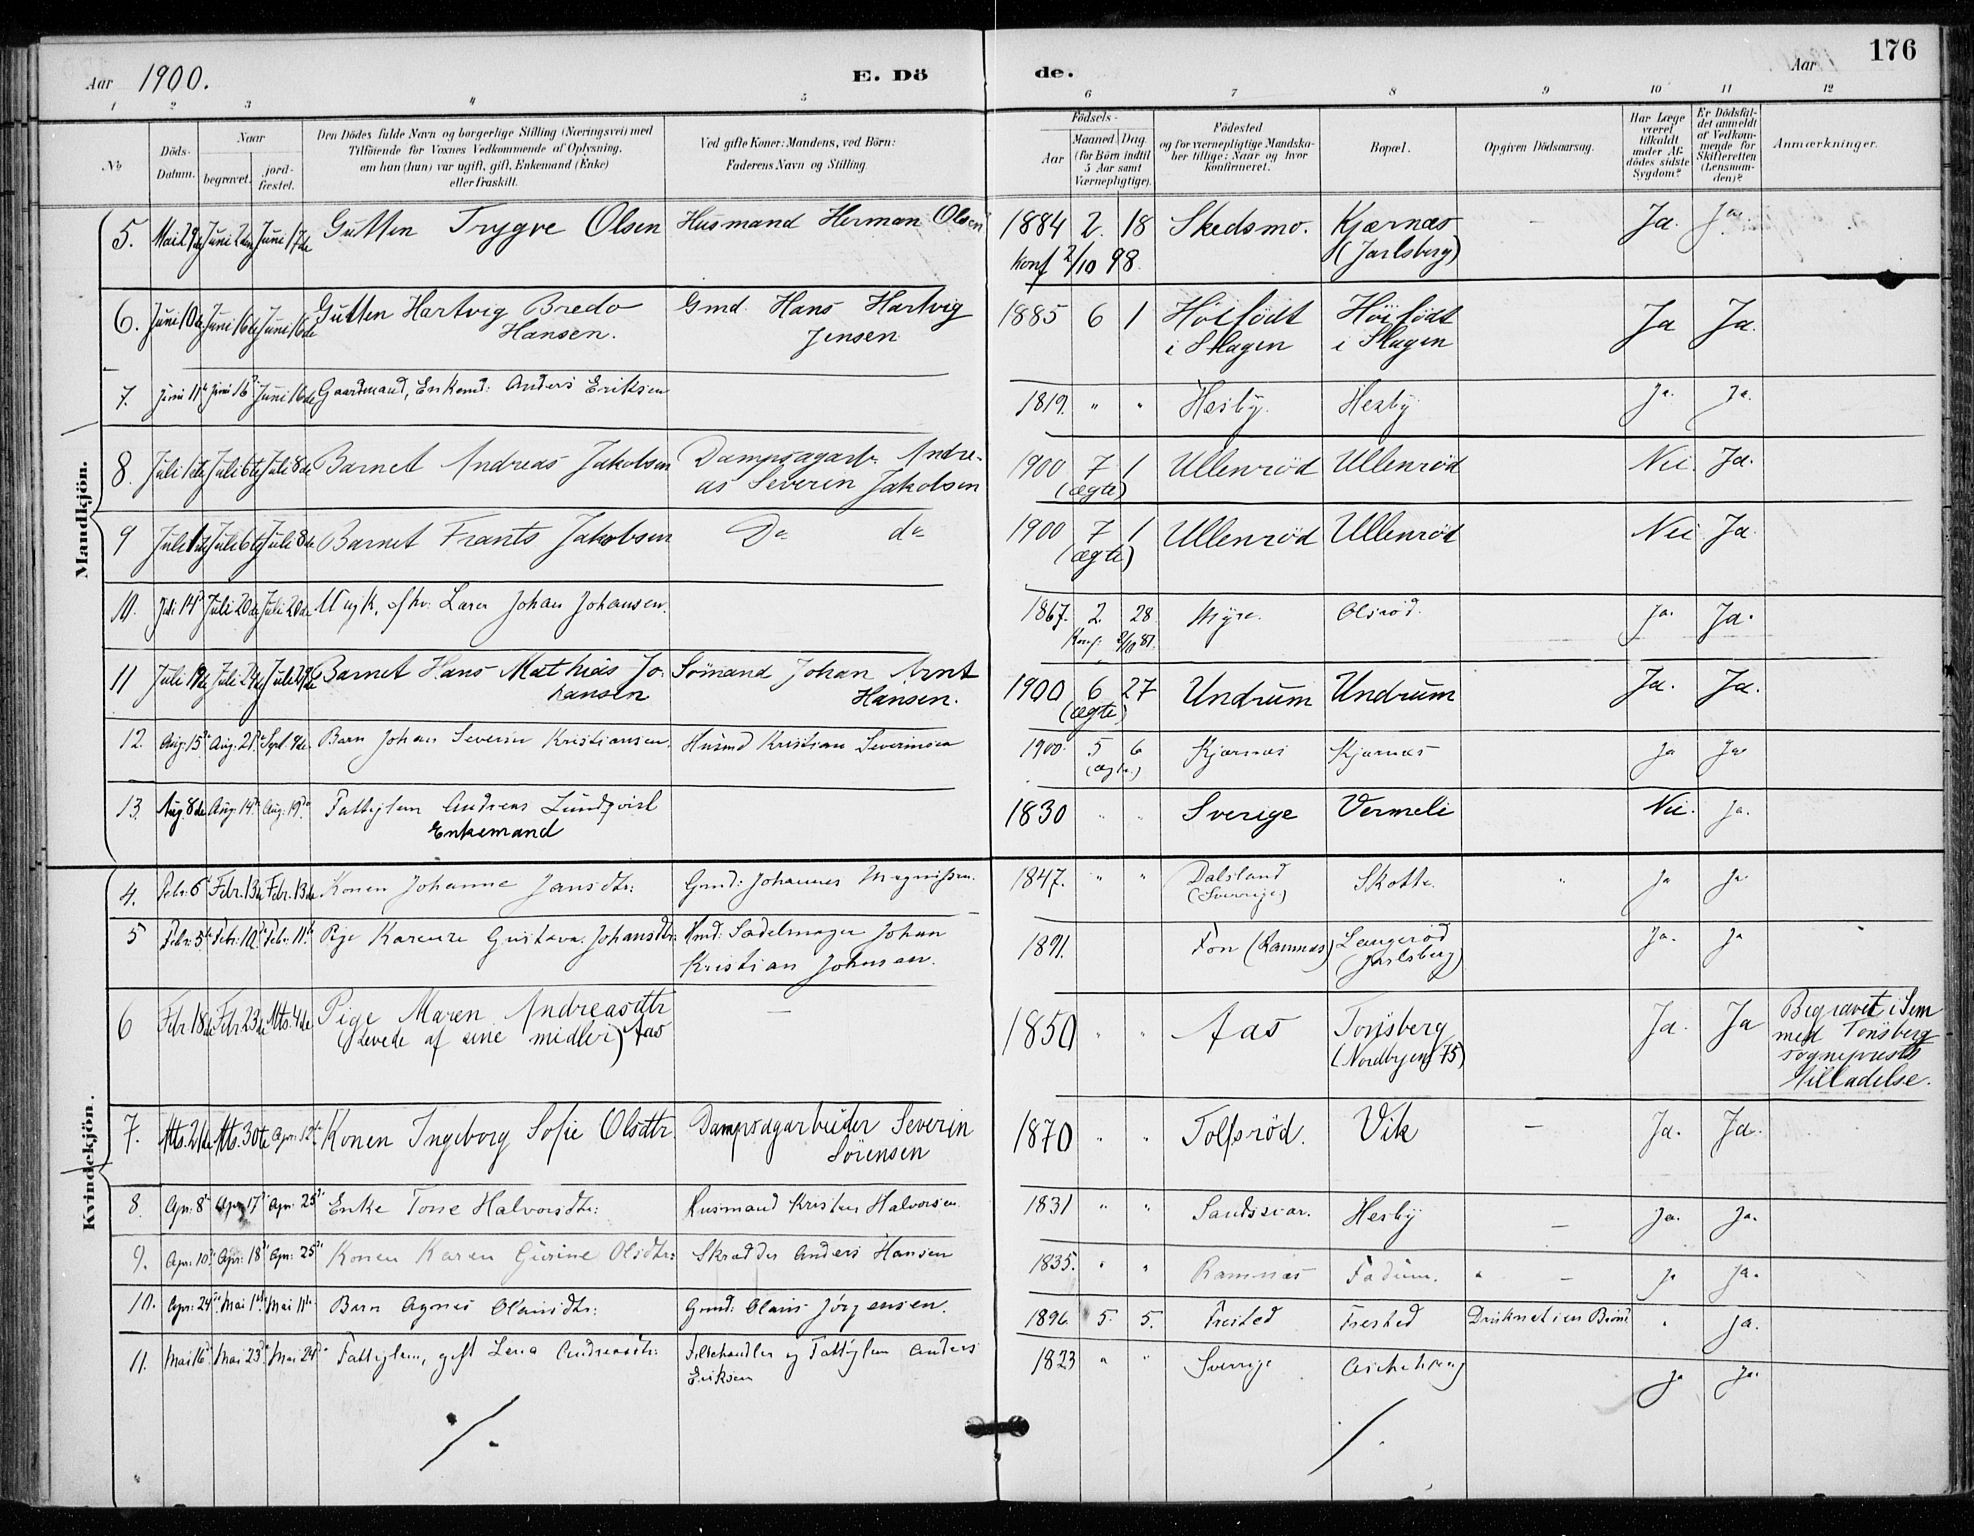 176
Aar 1900.
E. Dö
de.
Aar
1 2 3 4 5 6 7 8 9 10 11 12
No
Döds-Datum.
Naar
begravet.
jordfæstet.
Den Dödes fulde Navn og borgerlige Stilling (Næringsvei) med
Tilföiende for Voxnes Vedkommende af Oplysning,
om hun (han) var ugift, gift, Enkemand (Enke)
eller fraskilt.
Ved gifte Koner: Mandens, ved Börn:
Faderens Navn og Stilling.
Födsels-
Aar
Maaned Dag
(for Börn indtil
5 Aar samt
Værnepligtige).
Födested
og for værnepligtige Mandskaber tillige: Naar og hvor
konfirmeret.
Bopæl.
Opgiven Dödsaarsag.
Har Læge
været
tilkaldt
under Afdödes sidste
Sygdom?
Er Dödsfaldet anmeldt
af Vedkommende for
Skifteretten
(Lensmanden)?
Anmærkninger.
Mandkjön.
5. Mai 29de Juni 2den Juni 17de Gutten Trygve Olsen Husmand Herman Olsen 1884 2. 18 Skedsmo. Kjærnæs - Ja. Ja.
konf 2/10 98. (Jarlsberg)
6. Juni 10de Juni 16de Juni 16de Gutten Hartvig Bredo Gmd. Hans Hartvig 1885 6 1 Höifödt Höifödt Ja Ja.
Hansen. Jensen i Slagen i Slagen
7. Juni 11te Juni 16de Juni 16de Gaardmand, Enkemd: Anders Eriksen 1819. " " Hesby. Hesby Ja. Ja.
8. Juli 1ste Juli 6te Juli 8de Barnet Andreas Jakobsen Dampsagarb. Andre- 1900 7 1 Ullenröd Ullenröd Nei. Ja.
as Severin Jakobsen (ægte)
9 Juli 1ste Juli 6te Juli 8de Barnet Frants Jakobsen Do do 1900 7 1 Ullenröd Ullenröd Nei Ja.
(ægte)
10. Juli 14de Juli 20de Juli 20de Ungk. Johan Johansen. 1867. 2. 28 Myre. Olsröd. Ja. Ja.
Konf: 81.
11 Juli 19de Juli 24de Juli 29de Barnet Hans Mathias Jo- Sömand Johan Arnt 1900 6 27 Undrum Undrum Ja. Ja.
hansen Hansen. (ægte)
12. Aug. 15de Aug. 21de Sept. 9de Barn Johan Severin Kristiansen. Husmd Kristian Severinsen 1900. 5 6 Kjærnæs Kjærnæs Ja Ja
(ægte.)
13. Aug. 8de Aug. 14de Aug. 19de Fattiglem Andreas Lundqvist 1830 " " Sverige Vermeli Nei. Ja.
Enkemand
Kvindekjön.
4. Febr. 6te Febr. 13de Febr. 13de Konen Johanne Jansdtr: Gmd: Johannes Magnussen. 1847. " " Dalsland Skotte. " Ja Ja
(Sverrige)
5 Febr. 5te Febr. 10de Febr. 11te Pige Karenze Gustava Johansdtr: Hmd: Sadelmager Johan 1891. Fon (Ramnæs) Langeröd Ja. Ja
Kristian Johnsen. (Jarlsberg)
6 Febr. 18de Febr. 23de Mts. 4de Pige Maren Andreasdtr - 1850 " " Aas Tönsberg Ja. Ja Begravet i Sem
(levede af sine midler) Aas (Nordbyen 75) med Tönsberg
sogneprests
tilladelse.
7. Mts. 21de Mts. 30te Apr. 12te Konen Ingeborg Sofie Olsdtr. Dampsagarbeider Severin 1870 " " Tolfsröd. Vik - Ja. Ja.
Sörensen
8. Apr: 8de Apr: 17de Apr. 25de Enke Tone Halvorsdtr: Husmand Kristen Halvorsen 1831 " " Sandsvær. Hesby - Ja. Ja.
9. Apr: 10de Apr: 18de Apr: 25de Konen Karen Gurine Olsdtr: Skrædder Anders Hansen 1835. " " Ramnæs Fadum. " - Ja Ja.
10. Apr: 24de Mai 1ste Mai 11te Barn Agnes Olausdtr: Gmd: Olaus Jörgensen. 1896 5. 5. Frested Frested Druknet i en Brönd " Ja.
11. Mai 16de Mai 23de Mai 24de Fattiglem, gift Lena Andreasdtr: Fattiglem Anders 1823 " " Sverrige Ja Ja.
Eriksen